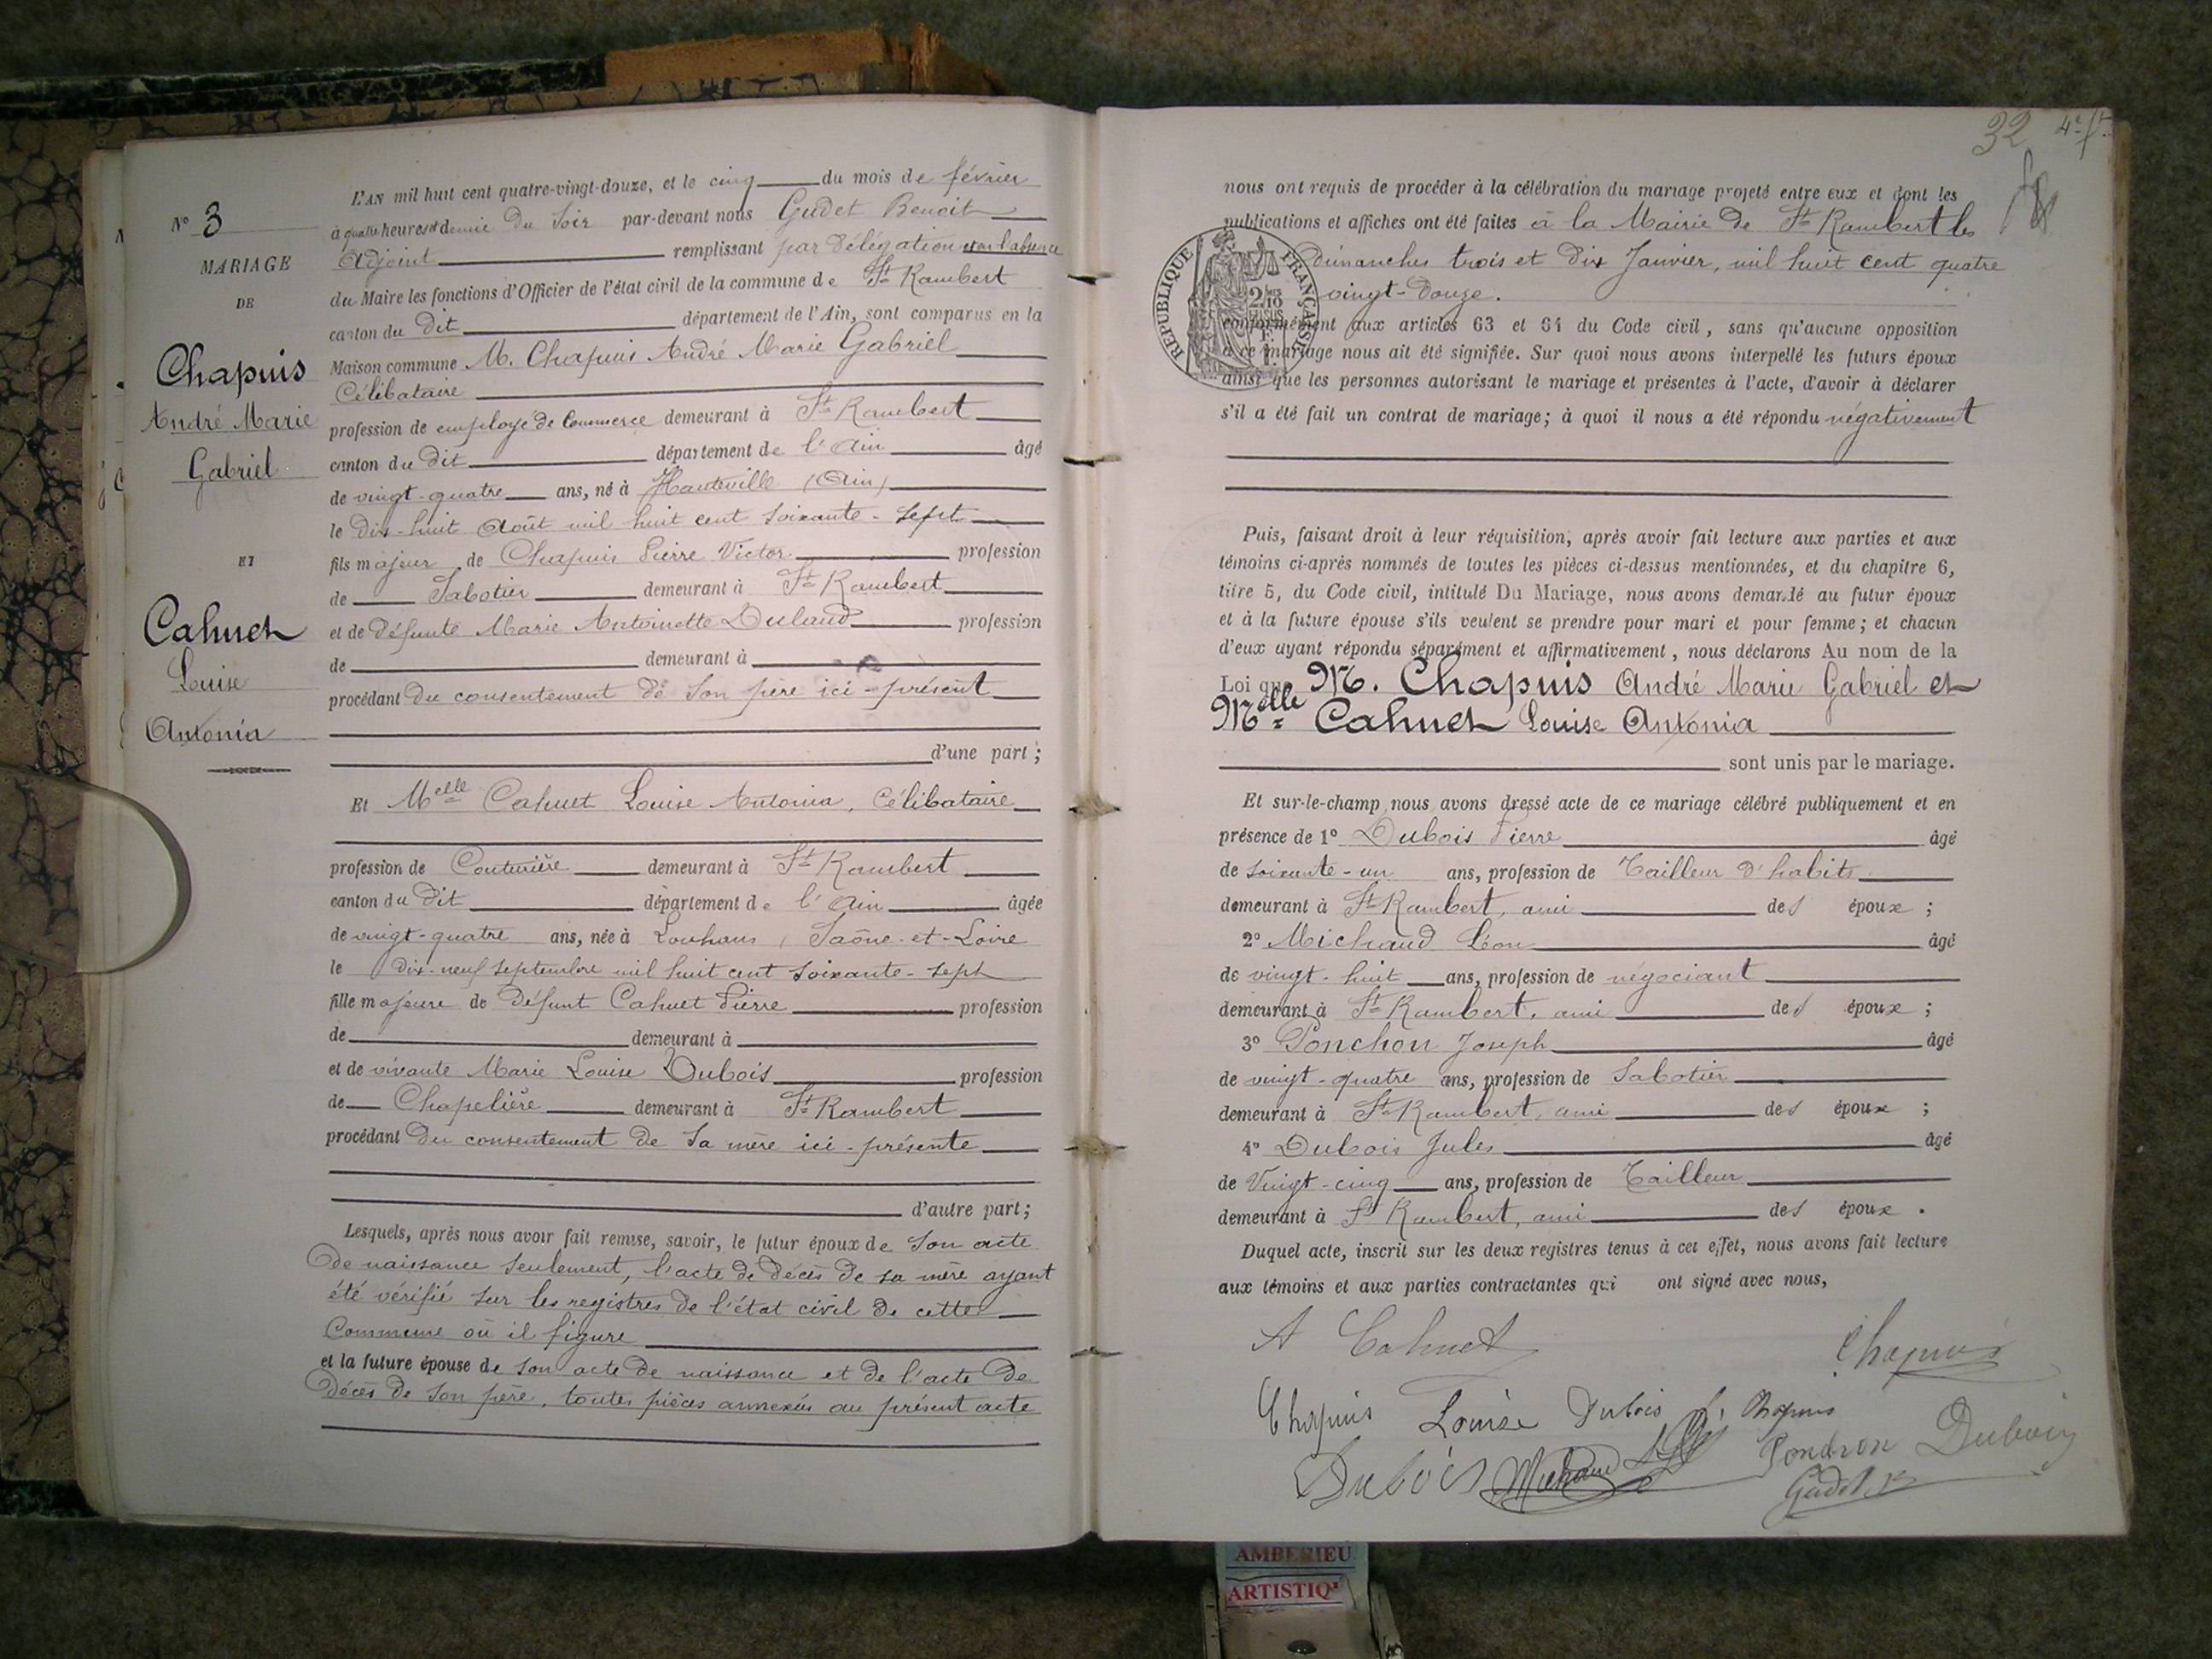 N° 3
MARIAGE
DE
Chapuis
André Marie
Gabriel
ET
Cahuet
Louise
Antonia
L'AN mil huit cent quatre-vingt-douze, et le cinq du mois de février
à quatre heures et demie du soir par-devant nous Gudet Benoit
Adjoint remplissant par délégation et en l'absence
du Maire les fonctions d'Officier de l'état civil de la commune de St Rambert
canton du dit département de l'Ain, sont comparus en la
Maison commune M. Chapuis André Marie Gabriel
Célibataire
profession de employé de Commerce demeurant à St Rambert
canton du dit département de l'Ain âgé
de vingt-quatre ans, né à Hauteville (Ain)
le dix-huit Août mil huit cent soixante-sept
fils majeur de Chapuis Pierre Victor profession
de Sabotier demeurant à St Rambert
et de défunte Marie Antoinette Duland profession
de demeurant à
procédant du consentement de son père ici-présent
d'une part ;
Et Melle Cahuet Louise Antonia, Célibataire
profession de Couturière demeurant à St Rambert
canton du dit département de l'Ain âgée
de vingt-quatre ans, née à Louhans, Saône-et-Loire
le dix-neuf septembre mil huit cent soixante-sept
fille majeure de défunt Cahuet Pierre profession
de demeurant à
et de vivante Marie Louise Dubois profession
de Chapelière demeurant à St Rambert
procédant du consentement de sa mère ici-présente
d'autre part;
Lesquels, après nous avoir fait remise, savoir, le futur époux de son acte
de naissance seulement, l'acte de décès de sa mère ayant
été vérifié sur les registres de l'état civil de cette
Commune où il figure
et la future épouse de son acte de naissance et de l'acte de
décès de son père, toutes pièces annexées au présent acte
32 4e ft
nous ont requis de procéder à la célébration du mariage projeté entre eux et dont les
publications et affiches ont été faites à la Mairie de St Rambert les
dimanches trois et dix Janvier, mil huit cent quatre
vingt-douze.
RÉPUBLIQUE FRANÇAISE
conformément aux articles 63 et 64 du Code civil, sans qu'aucune opposition
à ce mariage nous ait été signifiée. Sur quoi nous avons interpellé les futurs époux
ainsi que les personnes autorisant le mariage et présentes à l'acte, d'avoir à déclarer
s'il a été fait un contrat de mariage; à quoi il nous a été répondu négativement
Puis, faisant droit à leur réquisition, après avoir fait lecture aux parties et aux
témoins ci-après nommés de toutes les pièces ci-dessus mentionnées, et du chapitre 6,
titre 5, du Code civil, intitulé Du Mariage, nous avons demandé au futur époux
et à la future épouse s'ils veulent se prendre pour mari et pour femme; et chacun
d'eux ayant répondu séparément et affirmativement, nous déclarons Au nom de la
Loi que M. Chapuis André Marie Gabriel et
Melle Cahuet Louise Antonia
sont unis par le mariage.
Et sur-le-champ nous avons dressé acte de ce mariage célébré publiquement et en
présence de 1° Dubois Pierre âgé
de soixante-un ans, profession de Tailleur d'habits
demeurant à St Rambert, ami des époux ;
2° Michaud Léon âgé
de vingt-huit ans, profession de négociant
demeurant à St Rambert, ami des époux ;
3° Ponchon Joseph âgé
de vingt-quatre ans, profession de Sabotier
demeurant à St Rambert, ami des époux ;
4° Dubois Jules âgé
de Vingt-cinq ans, profession de Tailleur
demeurant à St Rambert, ami des époux.
Duquel acte, inscrit sur les deux registres tenus à cet effet, nous avons fait lecture
aux témoins et aux parties contractantes qui ont signé avec nous,
A Cahuet Chapuis
Chapuis Louise Dubois Chapuis
Dubois Michaud Ponchon Dubois
Gudet B
AMBERIEU
ARTISTIQ